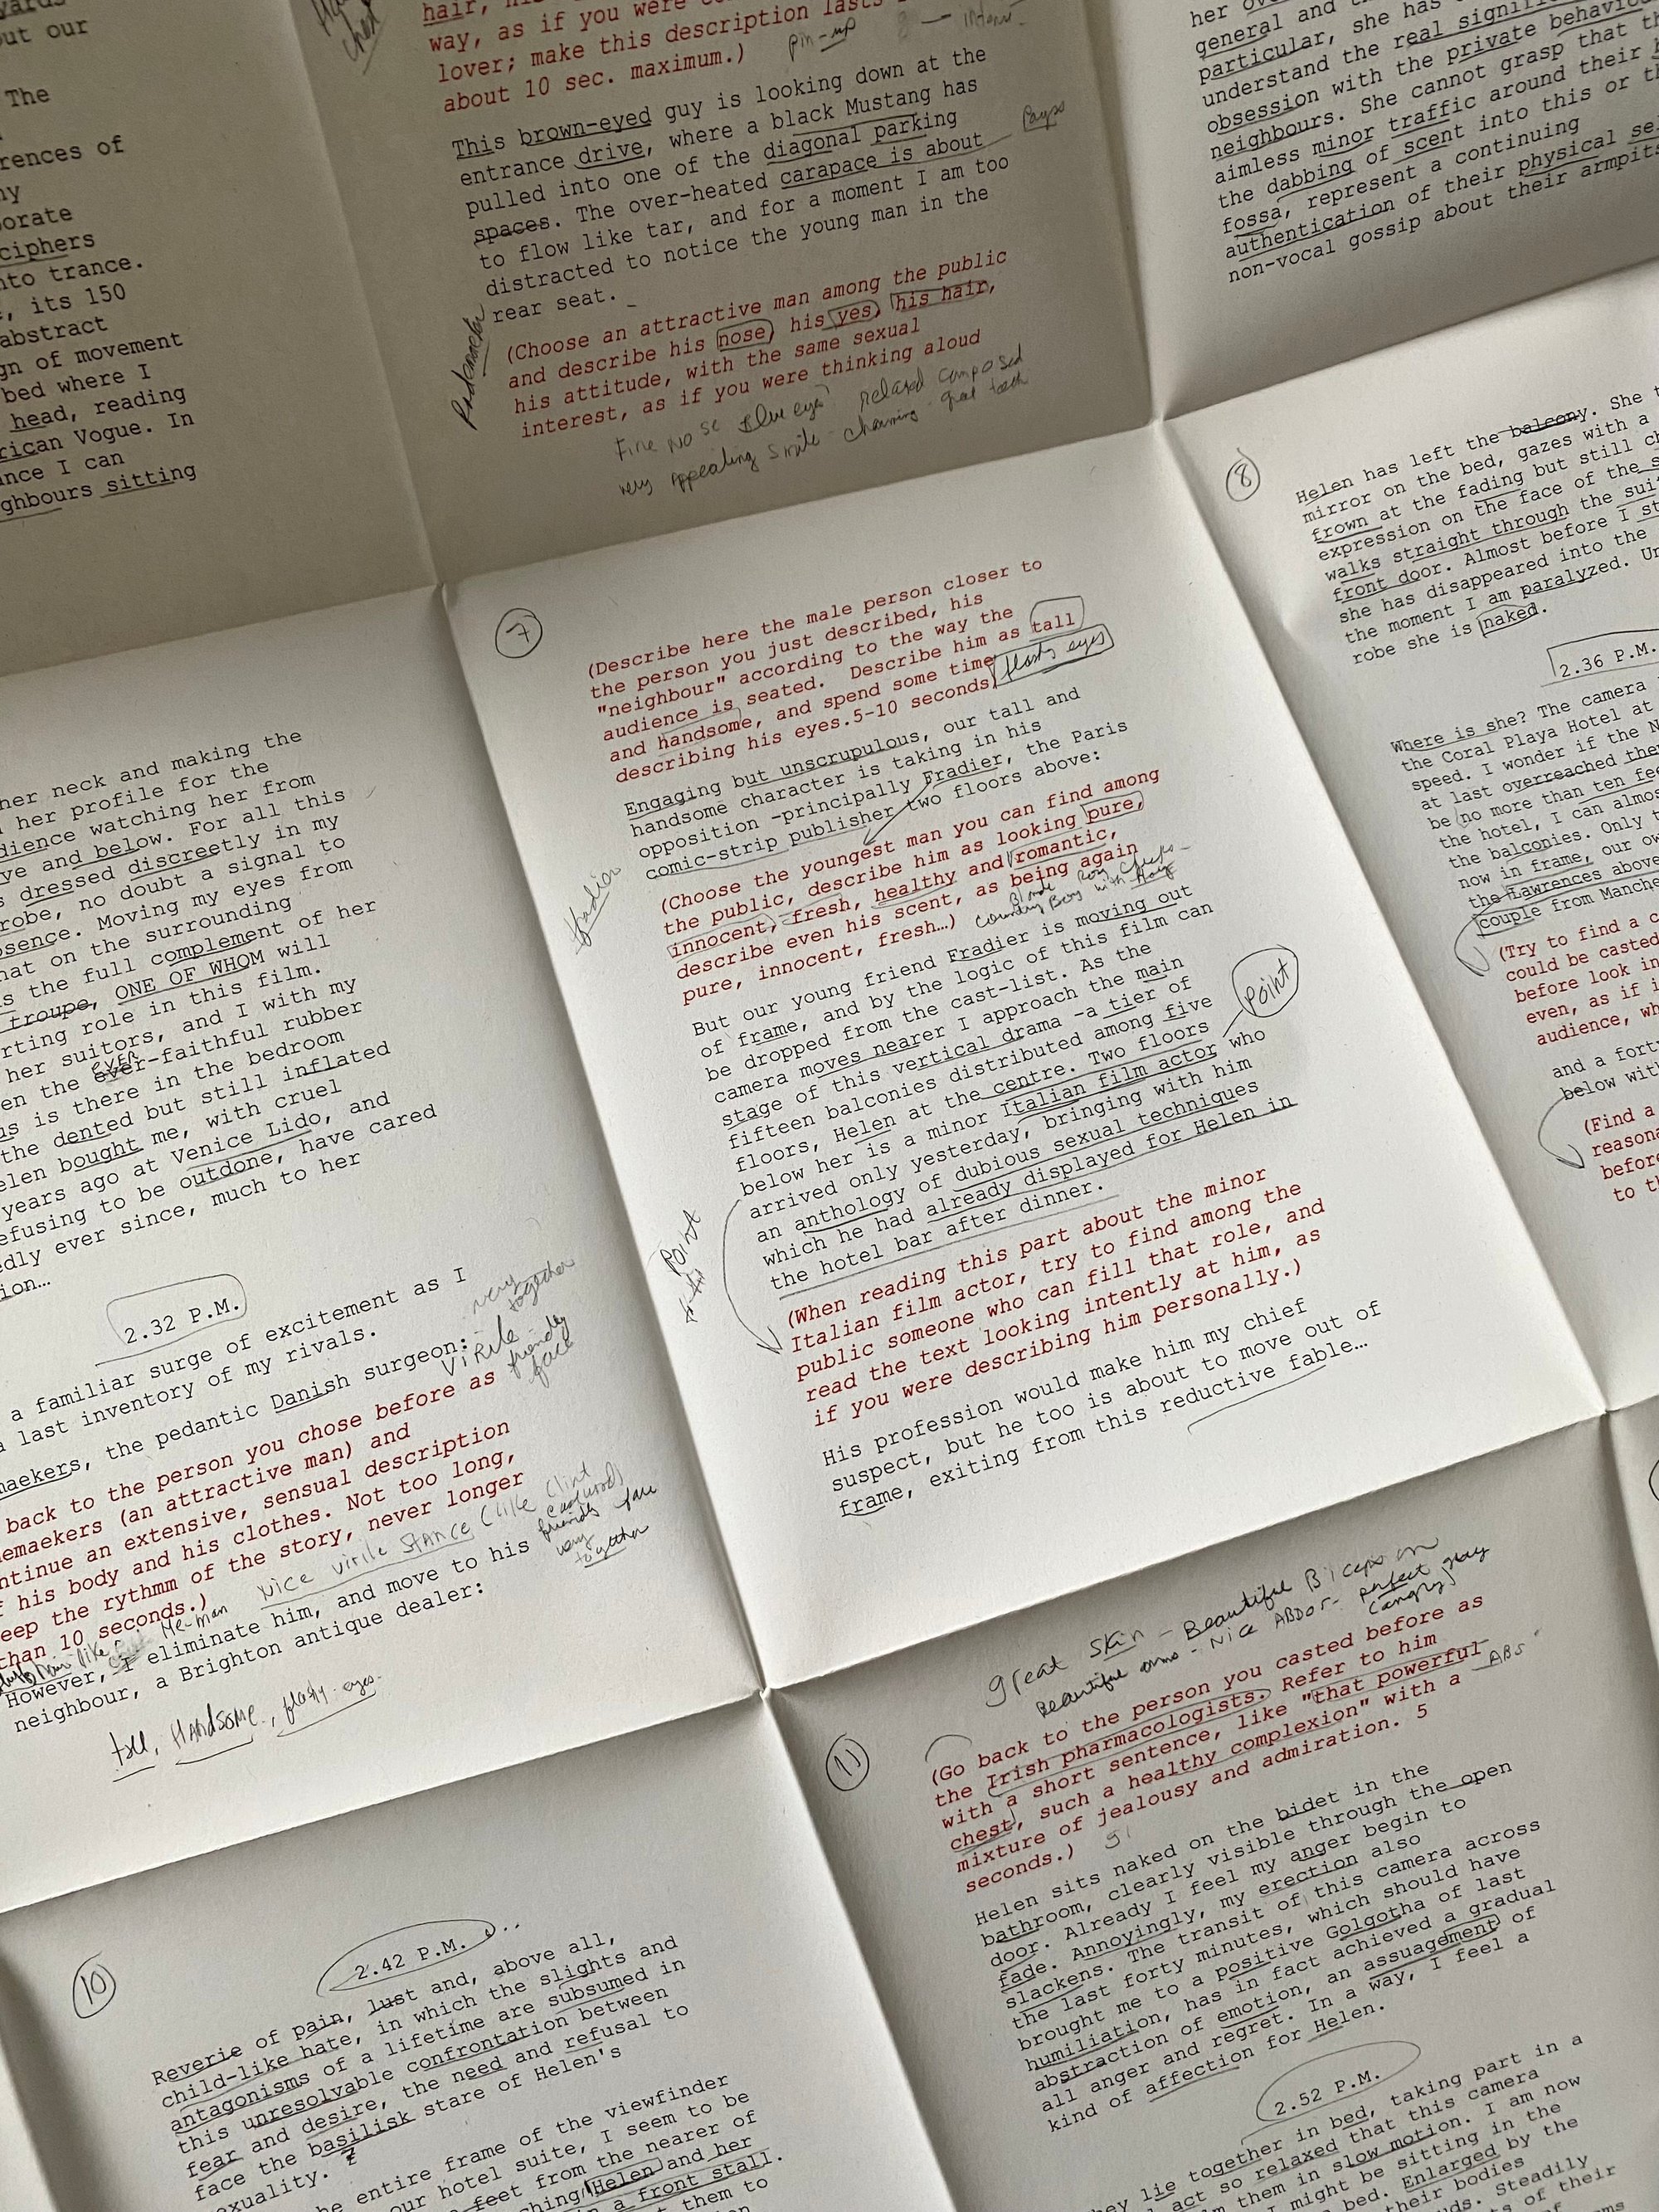 yards
out our
The
rences of
ny
orate
ciphers
nto trance.
, its 150
abstract
gn of movement
bed where I
head, reading
rican Vogue. In
ance I can
ghbours sitting
hair,
way, as if you were
lover; make this description lasts
about 10 sec. maximum.)
pin-up
This brown-eyed guy is looking down at the
entrance drive, where a black Mustang has
pulled into one of the diagonal parking
spaces. The over-heated carapace is about
to flow like tar, and for a moment I am too
distracted to notice the young man in the
rear seat.
(Choose an attractive man among the public
and describe his nose, his yes, his hair,
his attitude, with the same sexual
interest, as if you were thinking aloud
Fine nose Blue eyes? relaxed composed
very appealing smile - charming - great teeth
her
general and
particular, she has
understand the real
obsession with the private
neighbours. She cannot grasp that
aimless minor traffic around their
the dabbing of scent into this or
fossa, represent a continuing
authentication of their physical
non-vocal gossip about their armpits
her neck and making the
her profile for the
dience watching her from
ve and below. For all this
s dressed discreetly in my
robe, no doubt a signal to
bsence. Moving my eyes from
hat on the surrounding
s the full complement of her
troupe, ONE OF WHOM will
rting role in this film.
her suitors, and I with my
en the ever-faithful rubber
EVER
us is there in the bedroom
the dented but still inflated
elen bought me, with cruel
years ago at Venice Lido, and
efusing to be outdone, have cared
edly ever since, much to her
ion…
2.32 P.M.
a familiar surge of excitement as I
a last inventory of my rivals.
maekers, the pedantic Danish surgeon:
very together
Virile
friendly face
back to the person you chose before as
emaekers (an attractive man) and
ntinue an extensive, sensual description
f his body and his clothes. Not too long,
eep the rythmm of the story, never longer
than 10 seconds.)
Nice virile stance (like Clint Eastwood)
very together
However, I eliminate him, and move to his
neighbour, a Brighton antique dealer:
tall, HANDSOME, flashy eyes
7
(Describe here the male person closer to
the person you just described, his
"neighbour" according to the way the
audience is seated. Describe him as tall
and handsome, and spend some time
describing his eyes.5-10 seconds)
flashy eyes
Engaging but unscrupulous, our tall and
handsome character is taking in his
opposition -principally Fradier, the Paris
comic-strip publisher two floors above:
(Choose the youngest man you can find among
the public, describe him as looking pure,
innocent, fresh, healthy and romantic,
describe even his scent, as being again
pure, innocent, fresh…)
Fradier
Blonde Rosy Cheeks
Country Boy with Hay
But our young friend Fradier is moving out
of frame, and by the logic of this film can
be dropped from the cast-list. As the
camera moves nearer I approach the main
stage of this vertical drama -a tier of
fifteen balconies distributed among five
floors, Helen at the centre. Two floors
below her is a minor Italian film actor who
arrived only yesterday, bringing with him
an anthology of dubious sexual techniques
which he had already displayed for Helen in
the hotel bar after dinner.
Point
Point
(When reading this part about the minor
Italian film actor, try to find among the
public someone who can fill that role, and
read the text looking intently at him, as
if you were describing him personally.)
His profession would make him my chief
suspect, but he too is about to move out of
frame, exiting from this reductive fable…
8
Helen has left the balcony. She
mirror on the bed, gazes with a
frown at the fading but still
expression on the face of the
walks straight through the
front door. Almost before I
she has disappeared into the
the moment I am paralyzed.
robe she is naked.
2.36 P.M.
Where is she? The camera
the Coral Playa Hotel at
speed. I wonder if the
at last overreached
be no more than ten
the hotel, I can almost
the balconies. Only
now in frame, our
the Lawrences above
couple from
(Try to find a
could be casted
before look
even, as if
audience,
and a
below
(Find a
10
2.42 P.M.
Reverie of pain, lust and, above all,
child-like hate, in which the slights and
antagonisms of a lifetime are subsumed in
this unresolvable confrontation between
fear and desire, the need and refusal to
face the basilisk stare of Helen's
exuality.
he entire frame of the viewfinder
our hotel suite, I seem to be
feet from the nearer of
ching Helen and her
in a front stall.
them to
11
great skin - Beautiful Biceps
Beautiful arms - Nice ABDO- perfect
(Go back to the person you casted before as
the Irish pharmacologists. Refer to him
with a short sentence, like "that powerful
chest, such a healthy complexion" with a
mixture of jealousy and admiration. 5
seconds.)
ABS
Helen sits naked on the bidet in the
bathroom, clearly visible through the open
door. Already I feel my anger begin to
fade. Annoyingly, my erection also
slackens. The transit of this camera across
the last forty minutes, which should have
brought me to a positive Golgotha of last
humiliation, has in fact achieved a gradual
abstraction of emotion, an assuagement of
all anger and regret. In a way, I feel a
kind of affection for Helen.
2.52 P.M.
hey lie together in bed, taking part in a
act so relaxed that this camera
them in slow motion. I am now
I might be sitting in the
bed. Enlarged by the
their bodies